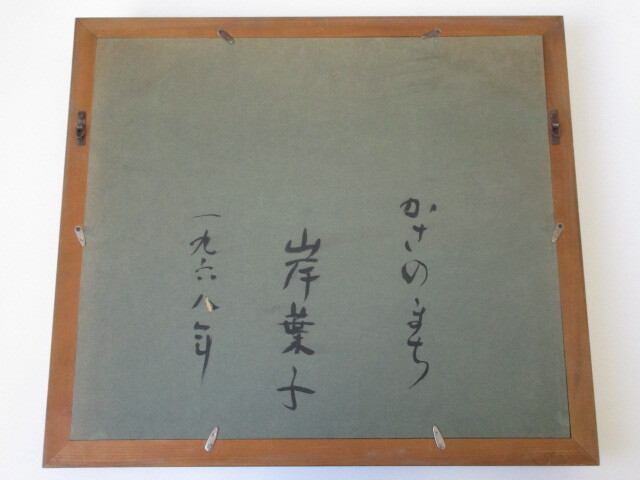 かさのまち
岸葉子
一九六八年